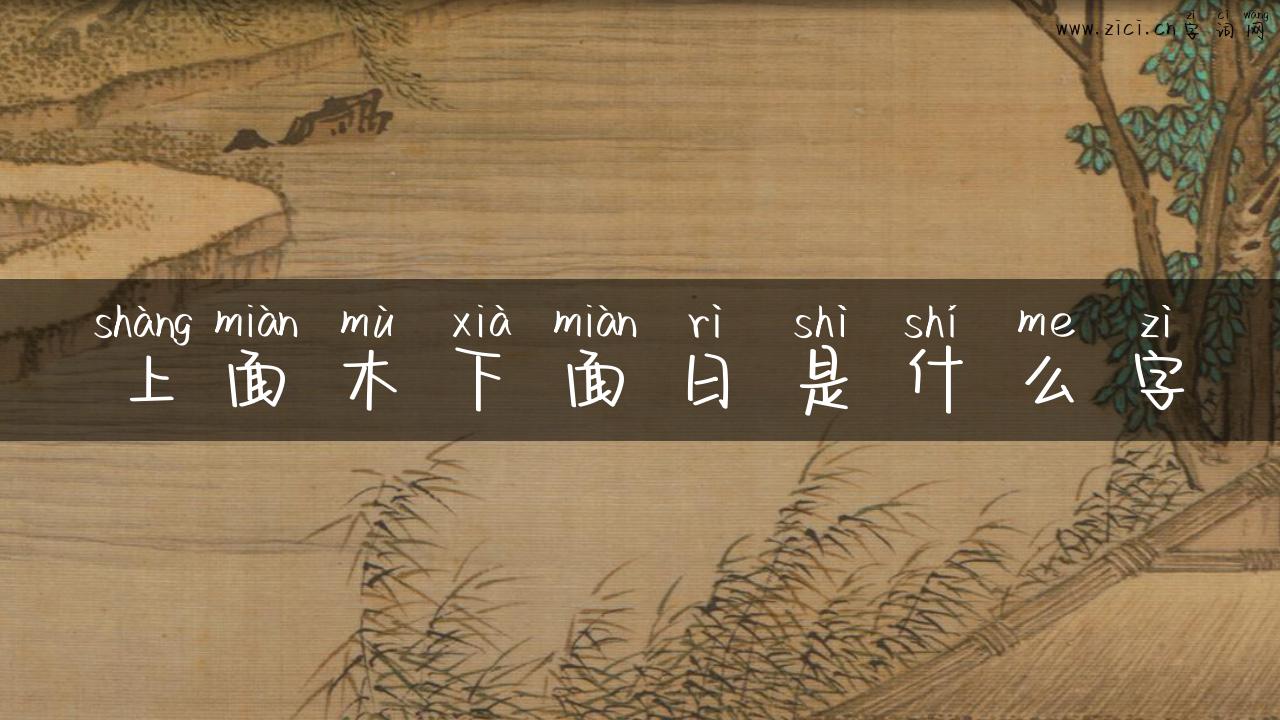 zì cí wǎng
www.zici.cn字词网
shàng miàn mù xià miàn rì shì shí me zì
上面木下面日是什么字